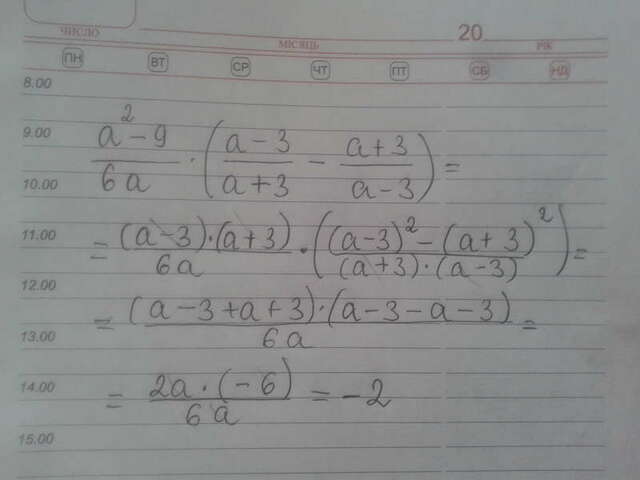 ЧИСЛО МІСЯЦЬ 20 РІК
ПН ВТ СР ЧТ ПТ СБ НД
8.00
9.00 (a² - 9)/(6a) · ((a - 3)/(a + 3) - (a + 3)/(a - 3)) =
10.00
11.00 = ((a - 3)·(a + 3))/(6a) · (((a - 3)² - (a + 3)²)/((a + 3)·(a - 3))) =
12.00
= ((a - 3 + a + 3)·(a - 3 - a - 3))/(6a) =
13.00
14.00 = (2a·(-6))/(6a) = -2
15.00